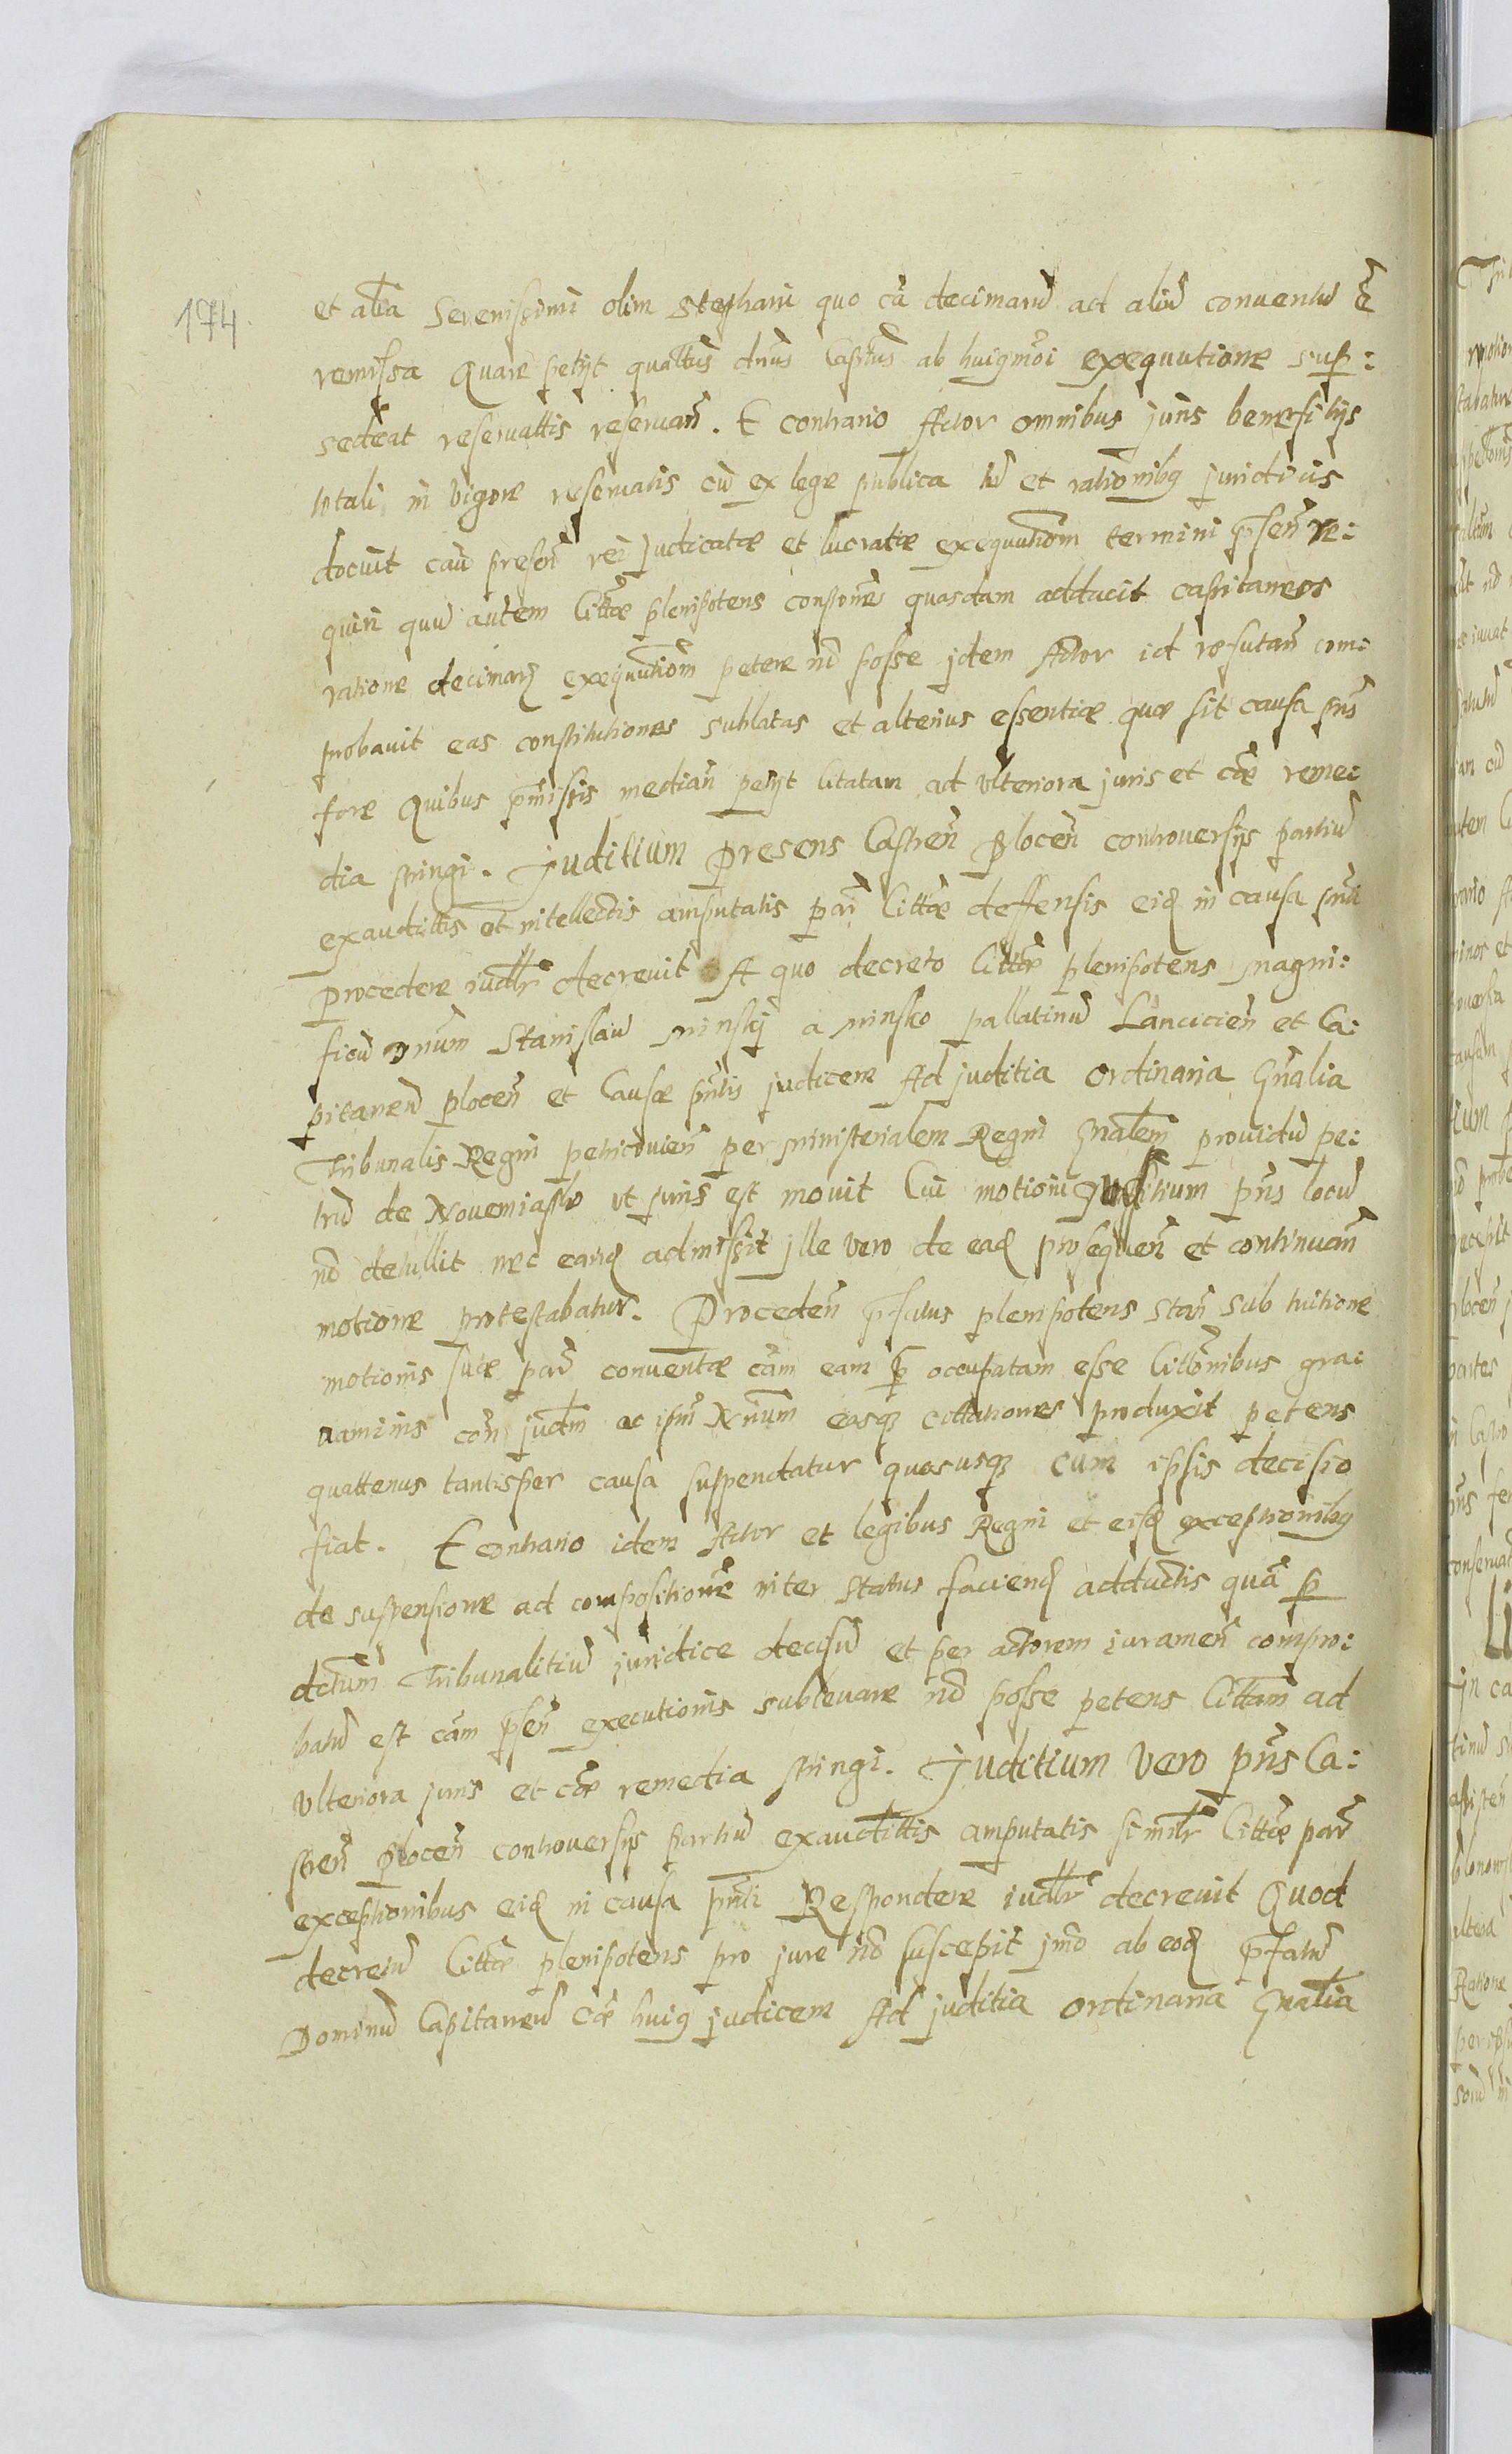 174.
et alia Serenissimi olim Stephani quo cã decimarũ ad aliũ conventũ ẽ
remissa Quare petijt quattẽs dnus Capteus ab huigmõi exequutione sup:
sedeat reservattis reservan̄. E contrario Actor omnibus juris benefitijs
totali in vigore reservatis cũ ex lege publica tũ et rationibq juridicis
docuit caũ presen̄ rei judicatæ et lucratæ exequutiõm termini p̄sen̄ re:
quiri quũ autem Cittæ plenipotens constones quasdam adducit capitaneos
ratione decimarꝫ exequutiõm petere nõ posse jdem Actor id refutan̄ com:
probavit eas constitutiones sublatas et alterius essentiæ quæ sit causa pn̄s
fore Quibus p̄missis median̄ petijt Citatam ad ulteriora juris et cãe reme:
dia stringi. Juditium Presens Castren̄ Plocen̄ controversijs partiũ
exaudittis et intellectis amputatis par̄ Cittæ deffensis eiꝫ in causa pn̄ti
Procedere iudltr decrevit A quo decreto Cittæ plenipotens Magni:
ficũ Dnũm Stanislaũ Minskj a Minsko pallatinũ Lancicien̄ et Ca:
pitaneũ plocen̄ et Causæ pn̄tis judicem Ad juditia ordinaria Gn̄alia
Tribunalis Regni petricovien̄ per Ministerialem Regni Gnãlem providũ pe:
trũ de Novemiasto ut juris est movit Cui motioni Juditium pn̄s locũ
nõ detullit nec eanꝫ admissit jlle vero de eaꝫ prosequen̄ et continuan̄
motione protestabatur. Proceden̄ p̄fatus plenipotens stan̄ sub tuitione
motionis suæ par̄ conventæ cãm eam p̄ occupatam esse Cittõnibus gra:
vaminis con̄ judm ac ipm̄ Nnum easqꝫ cittationes produxit petens
quattenus tantisper causa suspendatur quousqꝫ cum ipsis decisio
fiat. E contrario idem Actor et legibus Regni et eisꝫ exceptionibq
de suspensione ad compositionẽ inter status faciendꝫ adductis quã p̄
dctum Tribunalitiũ juridice decisũ et per actorem iuramen̄ compro:
batũ est cãm p̄sen̄ executionis sublevare nõ posse petens Cittam ad
ulteriora juris et cãe remedia stringi. Juditium vero pn̄s Ca:
stren̄ Plocen̄ controversijs partiũ exaudittis amputatis similr Cittæ par̄
exceptionibus eiꝫ in causa pn̄ti Respondere iudltr decrevit Quod
decretũ Cittæ plenipotens pro jure nõ suscepit jmo ab eoꝫ p̄fatũ
Dominũ Capitaneũ cãe huiq judicem Ad juditia ordinaria Gnãlia